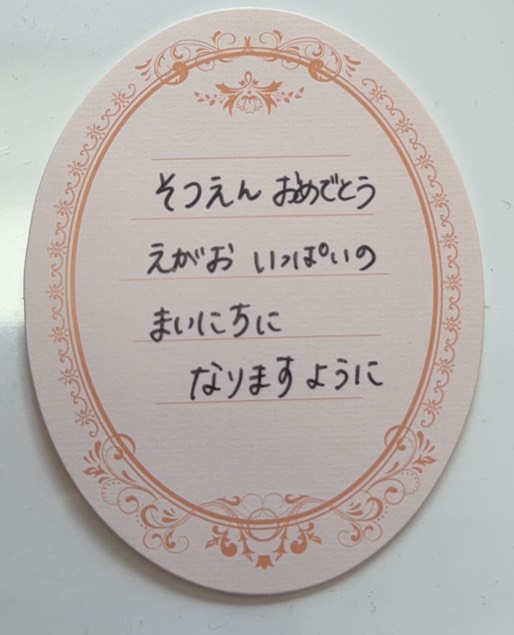 そつえん おめでとう
えがお いっぱいの
まいにちに
なりますように